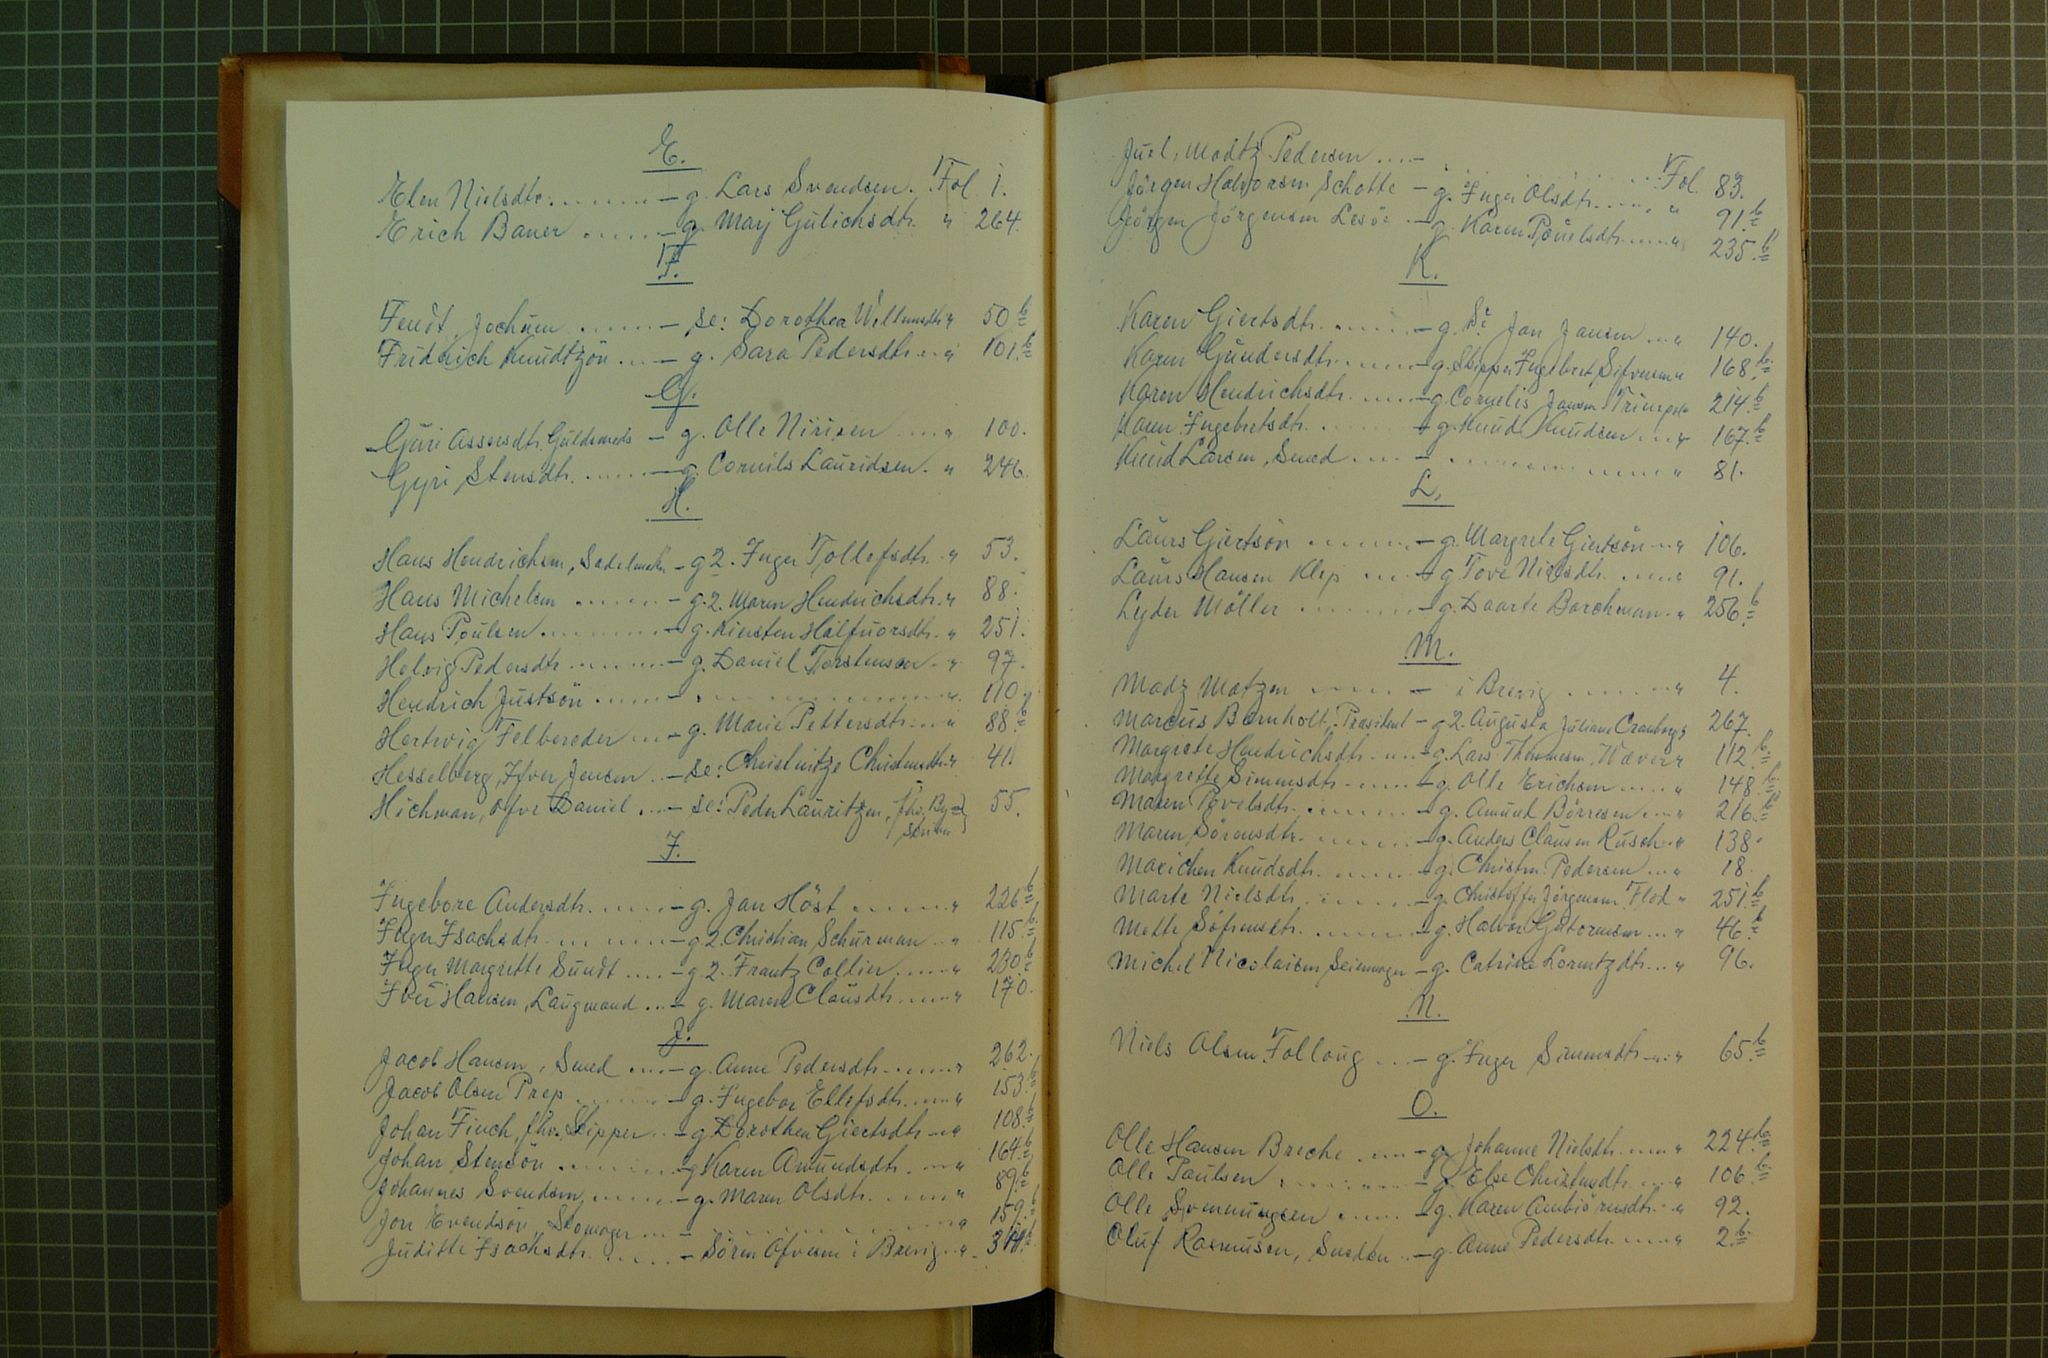 E.
Elen Nielsdtr. ........ – g. Lars Svendsen. Fol 1.
Erich Bauer ...... – g. Marj Gulichsdtr. " 264.
F.
Fendt, Jochum ........ – se: Dorothea Willumsdtr " 50.b
Fridrich Knudtzön .... – g. Sara Pedersdtr ... " 101.b
G.
Guri Assersdtr. Guldsmeds – g. Olle Nirisen .... " 100.
Gyri Stensdtr. ........ – g. Cornils Lauridsen. " 246.
H.
Hans Hendrichsen, Sadelmaker – g 2. Inger Tollefsdtr. " 53.
Hans Michelsen ....... – g. 2. Maren Hendrichsdtr. " 88.
Hans Poulsen ........... – g. Kiersten Halfuorsdtr. " 251.
Helvig Pedersdtr. ........ – g. Daniel Torstensen .. " 97.
Hendrich Justsön ........ – .................... " 110.
Hertwig Felbereder .... – g. Marie Pettersdtr. .... " 88.b
Hesselberg, Ifver Jensen ... – se: Christnitze Christensdtr " 41.
Hichman, Ofve Daniel .... – se: Peder Lauritzen, fhv. By=
skriver } 55.
I.
Ingebore Andersdtr. ...... – g. Jan Höst ......... " 226.b
Inger Isachsdtr. ... ..... – g 2. Christian Schurman ... " 115.b
Inger Margrette Sundt .... – g 2. Frantz Collier ...... " 230.b
Iver Hansen, Laugmand .... – g. Maren Clausdtr. ..... " 170.
J.
Jacob Hansen, Smed .... – g. Anne Pedersdtr. ...... " 262.
Jacob Olsen Prep ......... – g. Ingebor Ellefsdtr. .... " 153.b
Johan Finch, fhv. Skipper ... – g Dorothea Giertsdtr ... " 108.b
Johan Stensön .......... – g Karen Amundsdtr. ... " 164.b
Johannes Svendsen, ....... – g. Maren Olsdtr. ...... " 89.b
Jon Evendsön, Skomager .... – .................. " 159.b
Juditte Isachsdtr. ....... – Sören Ofvesen i Brevig .. "
Juel, Madtz Pedersen ..... – .............. Fol. 83.
Jörgen Halvorsen Schotte – g. Inger Olsdtr. ..... " 91.b
Jörgen Jörgensen Lesöe ... – g. Karen Pouelsdtr. ..... " 235.b
K.
Karen Giertsdtr. ........ – g. Sr Jan Jansen ... " 140.
Karen Gundersdtr. ........ – g. Skipper Ingebret Sifversen " 168.b
Karen Hendrichsdtr. ...... – g. Cornelis Jansen " 214.b
Karen Ingebretsdtr. ....... – g. Knud Knudsen .... " 167.b
Knud Larsen, Smed ..... – ................ " 81.
L.
Laurs Giertsön ........ – g. Margrete Giertsön ... " 106.
Laurs Hansen Klep .... – g Tove Nielsdtr. ..... " 91.
Lyder Möller .......... – g. Daarte Borchman .. " 256.b
M.
Madz Matzen ....... – i Brevig ......... " 4.
Marcus Barnholt, Præsident – g 2. Augusta Juliane " 267.
Margrete Hendrichsdtr. .... – g. Lars Thommesen, Wæver " 112.b
Margrette Simensdtr. ..... – g. Olle Erichsen ..... " 148.b
Maren Povelsdtr. ......... – g. Amund Börresen .... " 216.b
Maren Sörensdtr. ........ – g. Anders Clausen Rusch .. " 138.
Marichen Knudsdtr. ....... – g. Christen Pedersen .... " 18.
Marte Nielsdtr. ......... – g. Christoffer Jörgensen Flod " 251.b
Mette Söfrensdtr. ........ – g. Halvor Gutormsen ... " 46.b
Michel Nicolaisen, Seiermager – g. Catrine Lorentzdtr. ... " 96.
N.
Niels Olsen Folloug .... – g. Inger Simensdtr. .... " 65.b
O.
Olle Hansen Breche ..... – g. Johanne Nielsdtr. .... " 224.b
Olle Paulsen ......... – g. Else Christensdtr. .... " 106.b
Olle Svennungsen ..... – g. Karen Ambiörnsdtr. .. " 92.
Oluf Rasmusen, Snedker .. – g. Anne Pedersdtr. ..... " 2.b